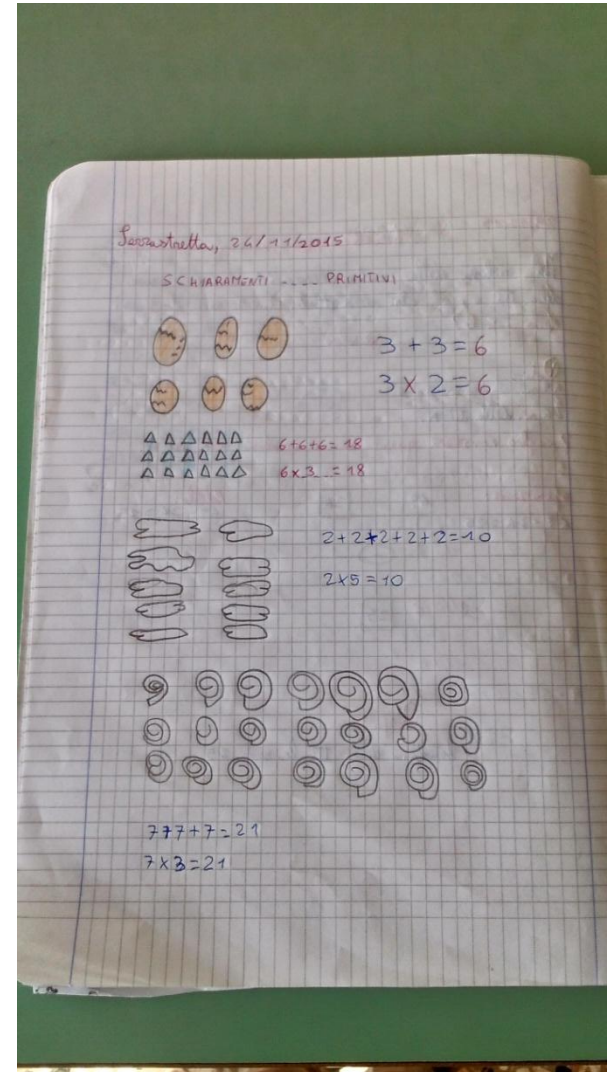 Serrastretta, 24/11/2015
SCHIARAMENTI .... PRIMITIVI
3 + 3 = 6
3 x 2 = 6
6+6+6=18
6x 3...=18
2+2+2+2+2=10
2x5=10
7+7+7=21
7x3=21